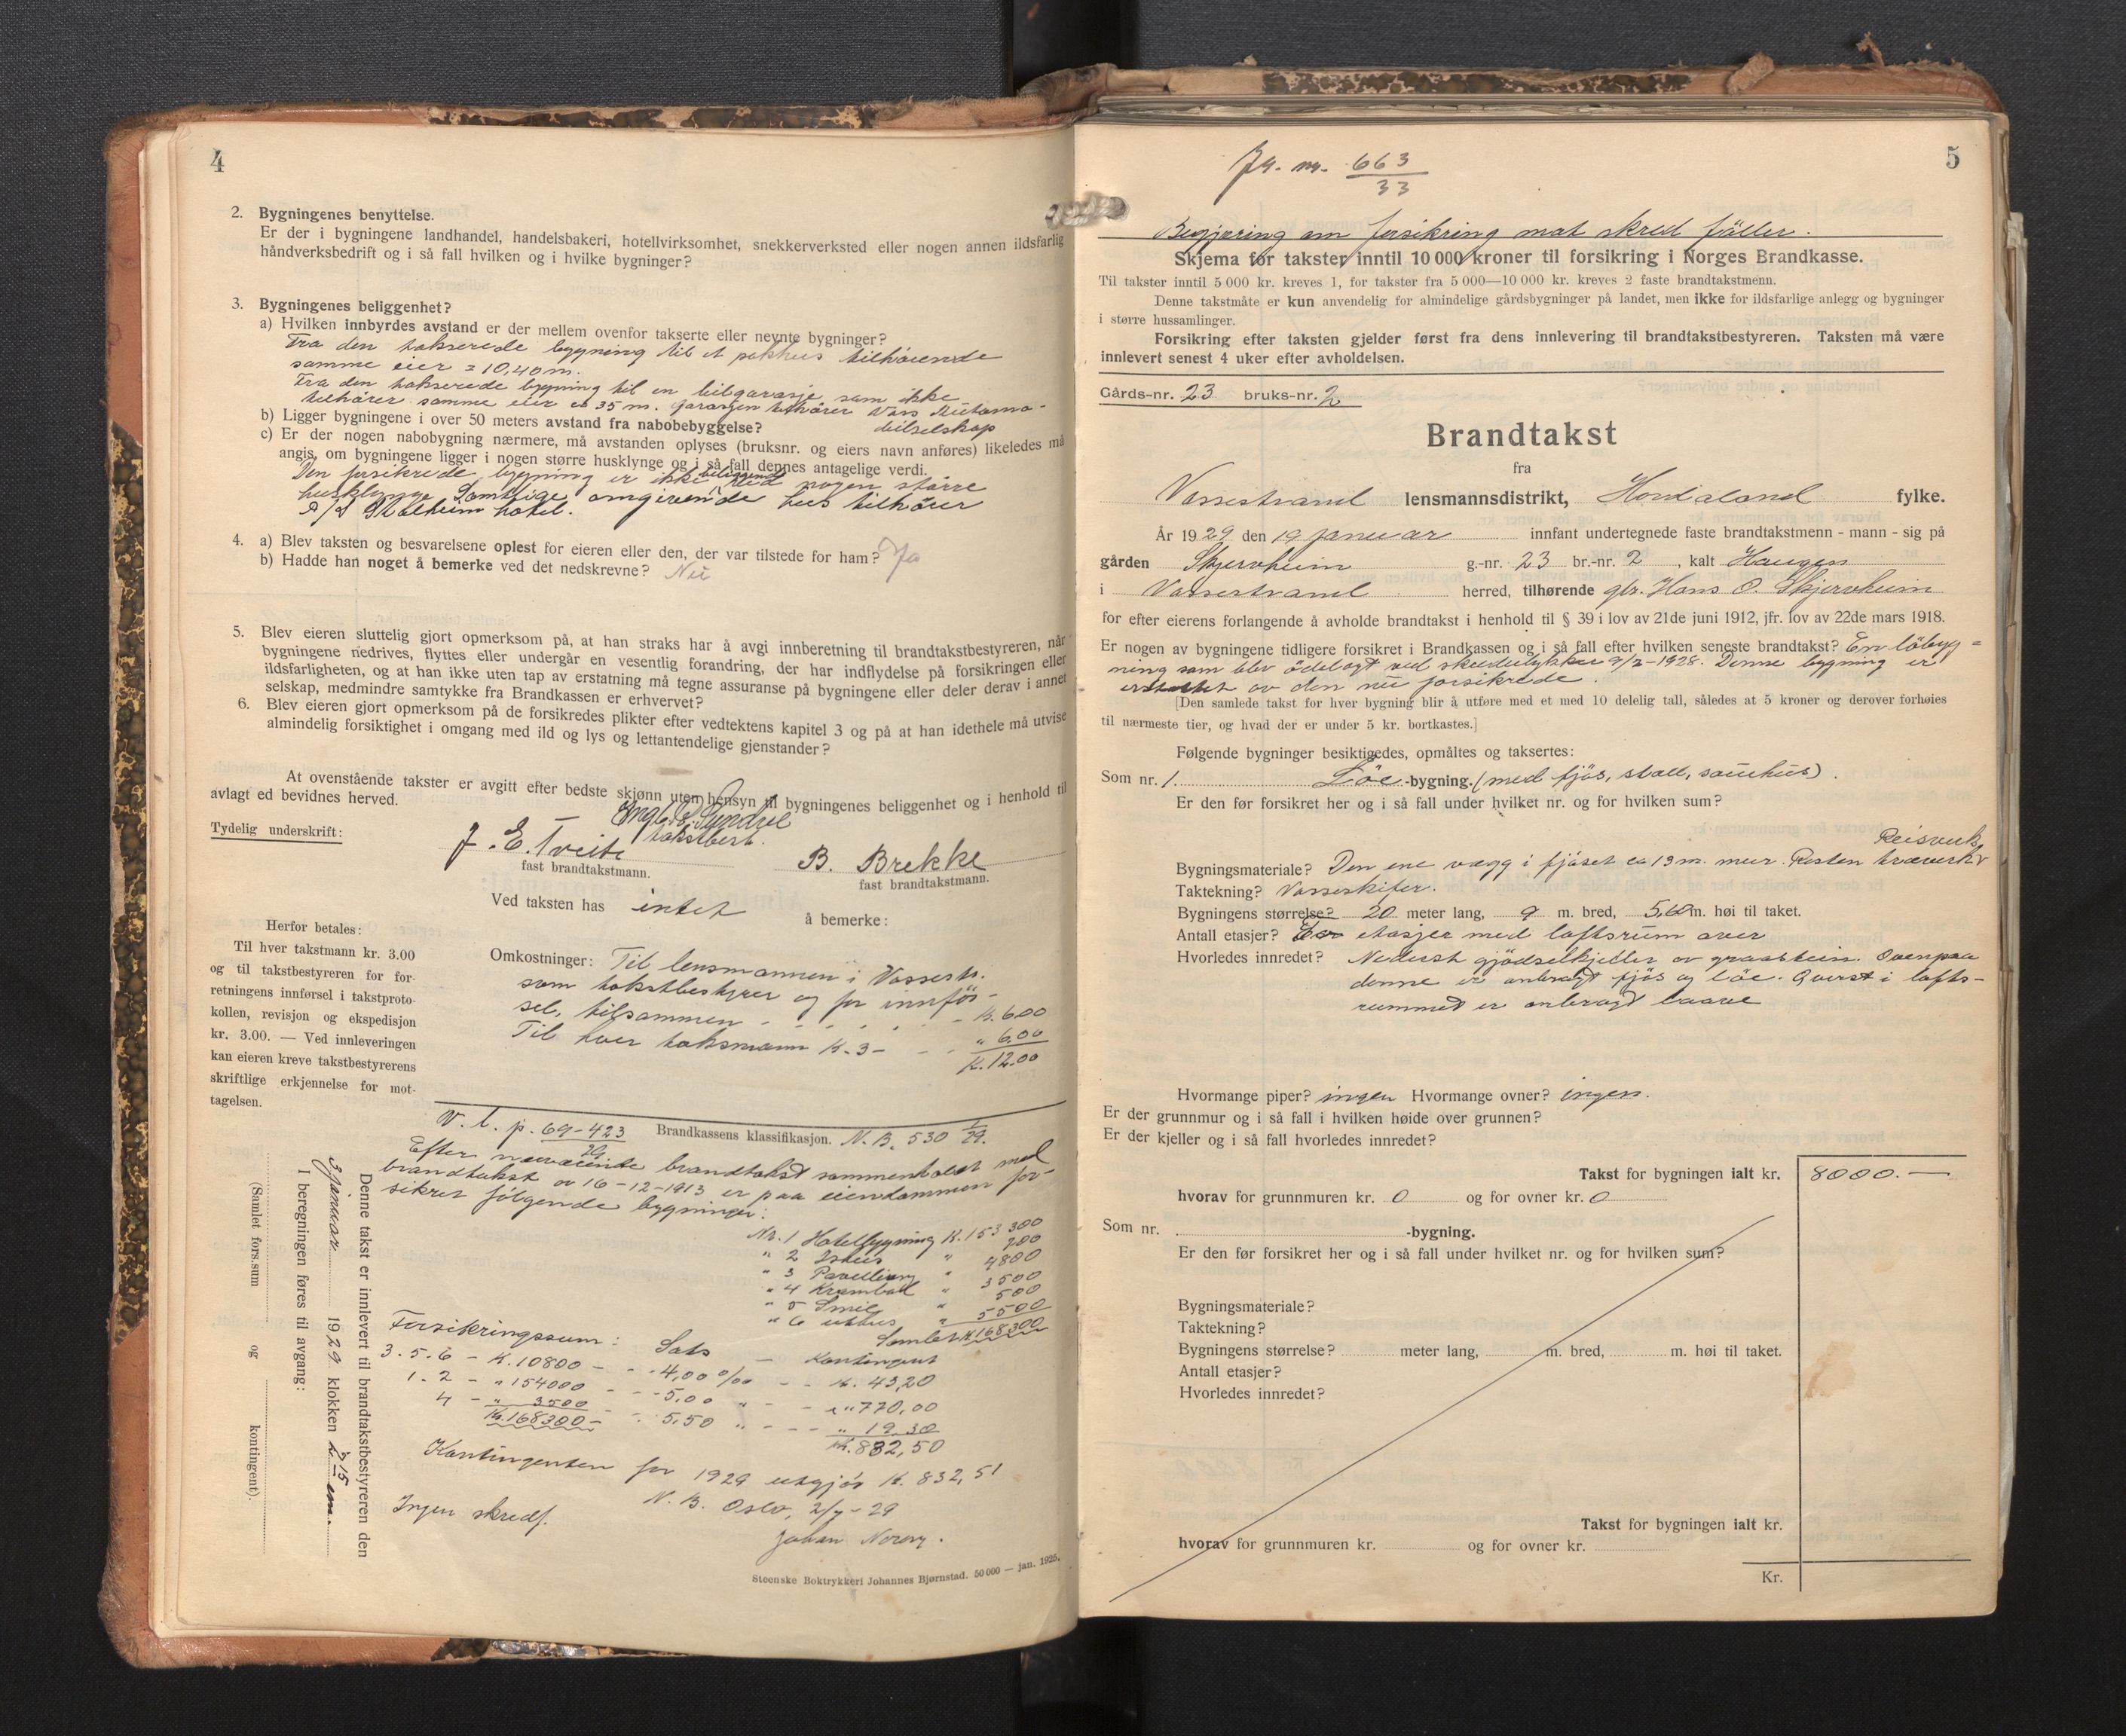 4
2. Bygningenes benyttelse.
Er der i bygningene landhandel, handelsbakeri, hotellvirksomhet, snekkerverksted eller nogen annen ildsfarlig
håndverksbedrift og i så fall hvilken og i hvilke bygninger?
3. Bygningenes beliggenhet?
a) Hvilken innbyrdes avstand er der mellem ovenfor takserte eller nevnte bygninger?
Fra den takserede bygning til et pakhus tilhörende
samme eier = 10,40 m.
Fra den takserede bygning til en bilgarasje som ikke
tilhører samme eier er 35 m. Garasjen tilhører Voss Automo-
bilselskap
b) Ligger bygningene i over 50 meters avstand fra nabobebyggelse?
c) Er der nogen nabobygning nærmere, må avstanden oplyses (bruksnr. og eiers navn anføres) likeledes må
angis, om bygningene ligger i nogen større husklynge og i så fall dennes antagelige verdi.
Den forsikrede bygning er ikke beliggende ved nogen större
husklynge. Samtlige omgivende hus tilhörer
A/S Stalheim hotel.
4. a) Blev taksten og besvarelsene oplest for eieren eller den, der var tilstede for ham? Ja
b) Hadde han noget å bemerke ved det nedskrevne? Nei
5. Blev eieren sluttelig gjort opmerksom på, at han straks har å avgi innberetning til brandtakstbestyreren, når
bygningene nedrives, flyttes eller undergår en vesentlig forandring, der har indflydelse på forsikringen eller
ildsfarligheten, og at han ikke uten tap av erstatning må tegne assuranse på bygningene eller deler derav i annet
selskap, medmindre samtykke fra Brandkassen er erhvervet?
6. Blev eieren gjort opmerksom på de forsikredes plikter efter vedtektens kapitel 3 og på at han idethele må utvise
almindelig forsiktighet i omgang med ild og lys og lettantendelige gjenstander?
At ovenstående takster er avgitt efter bedste skjønn uten hensyn til bygningenes beliggenhet og i henhold til
avlagt ed bevidnes herved.
takstbest.
Tydelig underskrift:
J. E. Tveite
fast brandtakstmann.
B. Brekke
fast brandtakstmann.
Ved taksten has intet å bemerke:
Herfor betales:
Til hver takstmann kr. 3.00
og til takstbestyreren for for-
retningens innførsel i takstproto-
kollen, revisjon og ekspedisjon
kr. 3.00. — Ved innleveringen
kan eieren kreve takstbestyrerens
skriftlige erkjennelse for mot-
tagelsen.
Omkostninger: Til lensmannen i Vossestr.
som takstbestyrer og for innför-
sel, tilsammen - - - - - K. 6.00
Til hver taksmann K. 3 - - - " 6.00
K. 12.00
V. l. p. 69-423
29
Brandkassens klassifikasjon. N. B. 530 1/29.
Efter nærværende brandtakst sammenholdt med
brandtakst av 16-12-1913 er paa eiendommen for-
sikret følgende bygninger:
Nr. 1 Hotelbygning K. 153300
" 2 Ishus " 700
" 3 Pavilliong " 4800
" 4 Krambod " 3500
" 5 Smie " 500
" 6 uthus " 5500
Samlet K 168300
Forsikringssum: Sats Kontingent
3. 5. 6 - K. 10800 - - 4,00 ‰ - - K. 43,20
1. 2 - " 154000 - - 5,00 " - - " 770,00
4 - " 3500 - - 5,50 " - - " 19.30
K. 168300 -
K. 832,50
Kontingenten for 1929 utgjör K. 832,51
Ingen skredf.
N. B. Oslo, 2/7-29
Johan
Denne takst er innlevert til brandtakstbestyreren den
3 januar 1929 klokken 2 15 em.
I beregningen føres til avgang:
(Samlet fors.sum og kontingent).
Steenske Boktrykkeri Johannes Bjørnstad. 50 000 — jan. 1925.
5
Ja. nr. 663
33
Begjæring om forsikring mot skred fäller.
Skjema for takster inntil 10 000 kroner til forsikring i Norges Brandkasse.
Til takster inntil 5 000 kr. kreves 1, for takster fra 5 000—10 000 kr. kreves 2 faste brandtakstmenn.
Denne takstmåte er kun anvendelig for almindelige gårdsbygninger på landet, men ikke for ildsfarlige anlegg og bygninger
i større hussamlinger.
Forsikring efter taksten gjelder først fra dens innlevering til brandtakstbestyreren. Taksten må være
innlevert senest 4 uker efter avholdelsen.
Gårds-nr. 23 bruks-nr. 2
Brandtakst
fra
Vossestrand lensmannsdistrikt, Hordaland fylke.
År 1929 den 19 januar innfant undertegnede faste brandtakstmenn - mann - sig på
gården Skjervheim g.-nr. 23 br.-nr. 2, kalt Haugen
i Vossestrand herred, tilhørende gbr. Hans O. Skjervheim
for efter eierens forlangende å avholde brandtakst i henhold til § 39 i lov av 21de juni 1912, jfr. lov av 22de mars 1918.
Er nogen av bygningene tidligere forsikret i Brandkassen og i så fall efter hvilken seneste brandtakst? En löbyg-
ning som blev ödelagt ved skredulykke 9/2-1928. Denne bygning er
erstattet av den nu forsikrede.
[Den samlede takst for hver bygning blir å utføre med et med 10 delelig tall, således at 5 kroner og derover forhøies
til nærmeste tier, og hvad der er under 5 kr. bortkastes.]
Følgende bygninger besiktigedes, opmåltes og taksertes:
Som nr. 1. Löe -bygning. (med fjös, stall, sauehus).
Er den før forsikret her og i så fall under hvilket nr. og for hvilken sum?
Reisverk
Bygningsmateriale? Den ene vægg i fjöset ca 13 m. mur. Resten træverk
Taktekning? Vosseskifer.
Bygningens størrelse? 20 meter lang, 9 m. bred, 5,60 m. høi til taket.
Antall etasjer? En etasjer med loftsrum over
Hvorledes innredet? Nederst gjödselkjeller av graastein. Ovenpaa
denne er anbragt fjös og löe. Överst i lofts-
rummet er anbragt laave
Hvormange piper? ingen Hvormange ovner? ingen.
Er der grunnmur og i så fall i hvilken høide over grunnen?
Er der kjeller og i så fall hvorledes innredet?
Takst for bygningen ialt kr. 8000.—
hvorav for grunnmuren kr. 0 og for ovner kr. 0
Som nr. -bygning.
Er den før forsikret her og i så fall under hvilket nr. og for hvilken sum?
Bygningsmateriale?
Taktekning?
Bygningens størrelse? meter lang, m. bred, m. høi til taket.
Antall etasjer?
Hvorledes innredet?
Takst for bygningen ialt kr.
hvorav for grunnmuren kr. og for ovner kr.
Kr.